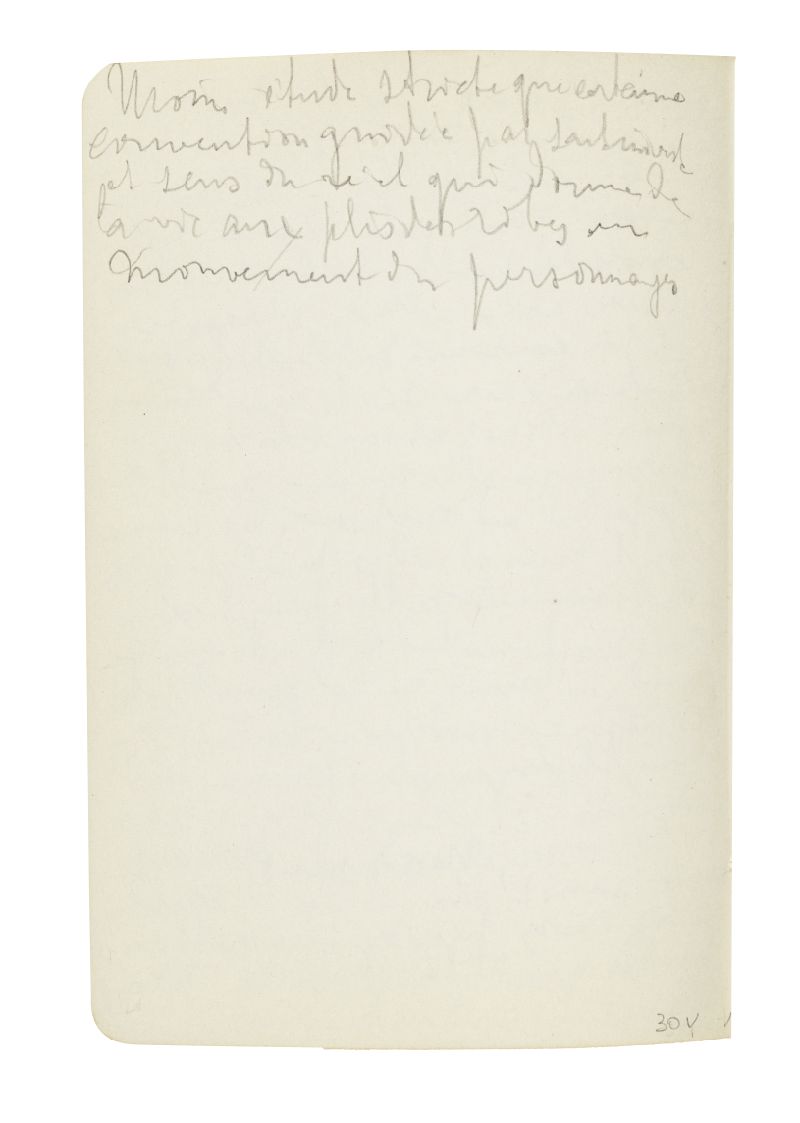 Moins étude stricte que certaine
convention guidée par sentiment
et sens du réel qui donne de
la vie aux plis des robes en
mouvement du personnage
30v